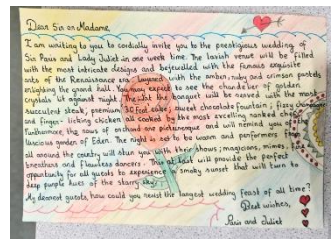 Dear Sir or Madame,
I am writing to you to cordially invite you to the prestigious wedding of
Sir Paris and Lady Juliet in one week time. The lavish venue will be filled
with the most intricate designs and bejewelled with the famous exquisite
arts of the Renaissance era, layered with the amber, ruby and crimson pastels
enlightening the grand hall. You may expect to see the chandelier of golden
crystals illuminate night. the banquet will be carved with the most
succulent steak, premium 30 foot cake, sweet chocolate fountain, fizzy champagne
and finger-licking chicken all cooked by the most excelling ranked chefs.
Furthermore, the rows of orchard are picturesque and will remind you of the
luscious garden of Eden. The night is set to be warm and performers from
all around the country will stun you with their shows; magicians, mimes,
breathers and flawless dancers. The at last will provide the perfect
opportunity for all guests to experience smoky sunset that will turn to
deep purple hues of the starry sky.
My dearest guests, how could you resist the largest wedding feast of all time?
Best wishes,
Paris and Juliet